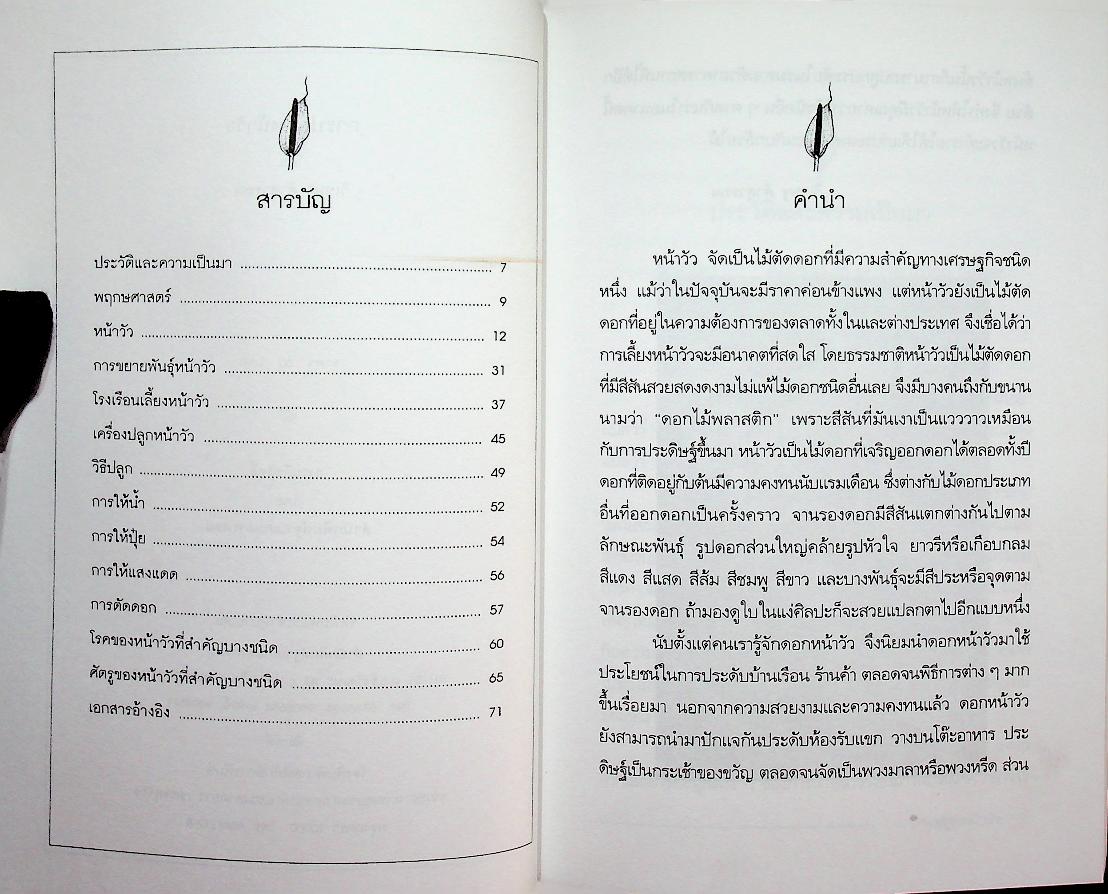 สารบัญ
ประวัติและความเป็นมา ........ 7
พฤกษศาสตร์ ........ 9
หน้าวัว ........ 12
การขยายพันธุ์หน้าวัว ........ 31
โรงเรือนเลี้ยงหน้าวัว ........ 37
เครื่องปลูกหน้าวัว ........ 45
วิธีปลูก ........ 49
การให้น้ำ ........ 52
การให้ปุ๋ย ........ 54
การให้แสงแดด ........ 56
การตัดดอก ........ 57
โรคของหน้าวัวที่สำคัญบางชนิด ........ 60
ศัตรูของหน้าวัวที่สำคัญบางชนิด ........ 65
เอกสารอ้างอิง ........ 71
คำนำ
หน้าวัว จัดเป็นไม้ตัดดอกที่มีความสำคัญทางเศรษฐกิจชนิด
หนึ่ง แม้ว่าในปัจจุบันจะมีราคาค่อนข้างแพง แต่หน้าวัวยังเป็นไม้ตัด
ดอกที่อยู่ในความต้องการของตลาดทั้งในและต่างประเทศ จึงเชื่อได้ว่า
การเลี้ยงหน้าวัวจะมีอนาคตที่สดใส โดยธรรมชาติหน้าวัวเป็นไม้ตัดดอก
ที่มีสีสันสวยสดงดงามไม่แพ้ไม้ดอกชนิดอื่นเลย จึงมีบางคนถึงกับขนาน
นามว่า "ดอกไม้พลาสติก" เพราะสีสันที่มันเงาเป็นแวววาวเหมือน
กับการประดิษฐ์ขึ้นมา หน้าวัวเป็นไม้ดอกที่เจริญออกดอกได้ตลอดทั้งปี
ดอกที่ติดอยู่กับต้นมีความคงทนนับแรมเดือน ซึ่งต่างกับไม้ดอกประเภท
อื่นที่ออกดอกเป็นครั้งคราว จานรองดอกมีสีสันแตกต่างกันไปตาม
ลักษณะพันธุ์ รูปดอกส่วนใหญ่คล้ายรูปหัวใจ ยาวรีหรือเกือบกลม
สีแดง สีแสด สีส้ม สีชมพู สีขาว และบางพันธุ์จะมีสีประหรือจุดตาม
จานรองดอก ถ้ามองดูใบในแง่ศิลปะก็จะสวยแปลกตาไปอีกแบบหนึ่ง
นับตั้งแต่คนเรารู้จักดอกหน้าวัว จึงนิยมนำดอกหน้าวัวมาใช้
ประโยชน์ในการประดับบ้านเรือน ร้านค้า ตลอดจนพิธีการต่าง ๆ มาก
ขึ้นเรื่อยมา นอกจากความสวยงามและความคงทนแล้ว ดอกหน้าวัว
ยังสามารถนำมาปักแจกันประดับห้องรับแขก วางบนโต๊ะอาหาร ประ
ดิษฐ์เป็นกระเช้าของขวัญ ตลอดจนจัดเป็นพวงมาลาหรือพวงหรีด ส่วน